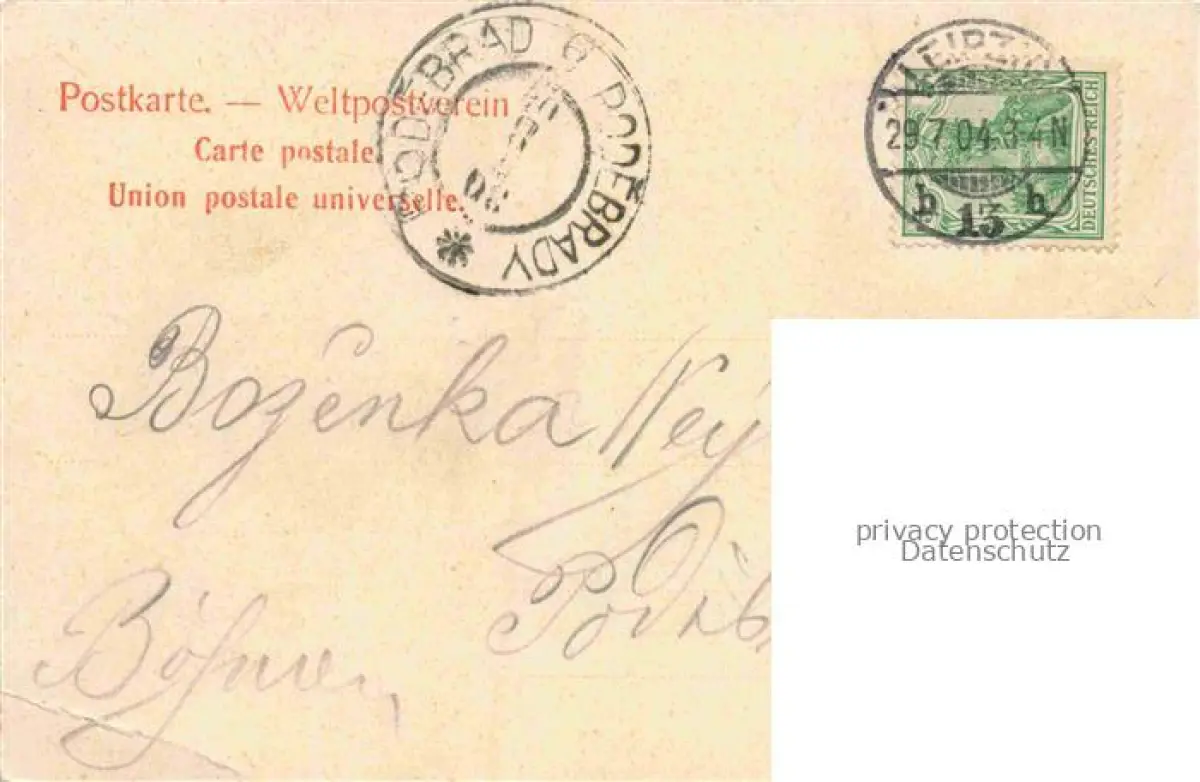 Postkarte. — Weltpostverein
Carte postale.
Union postale universelle.
PODĚBRAD 6 PODĚBRADY
LEIPZIG
29.7.04.3-4N
b 13 b
DEUTSCHES REICH
Boženka
Böhmen
privacy protection
Datenschutz